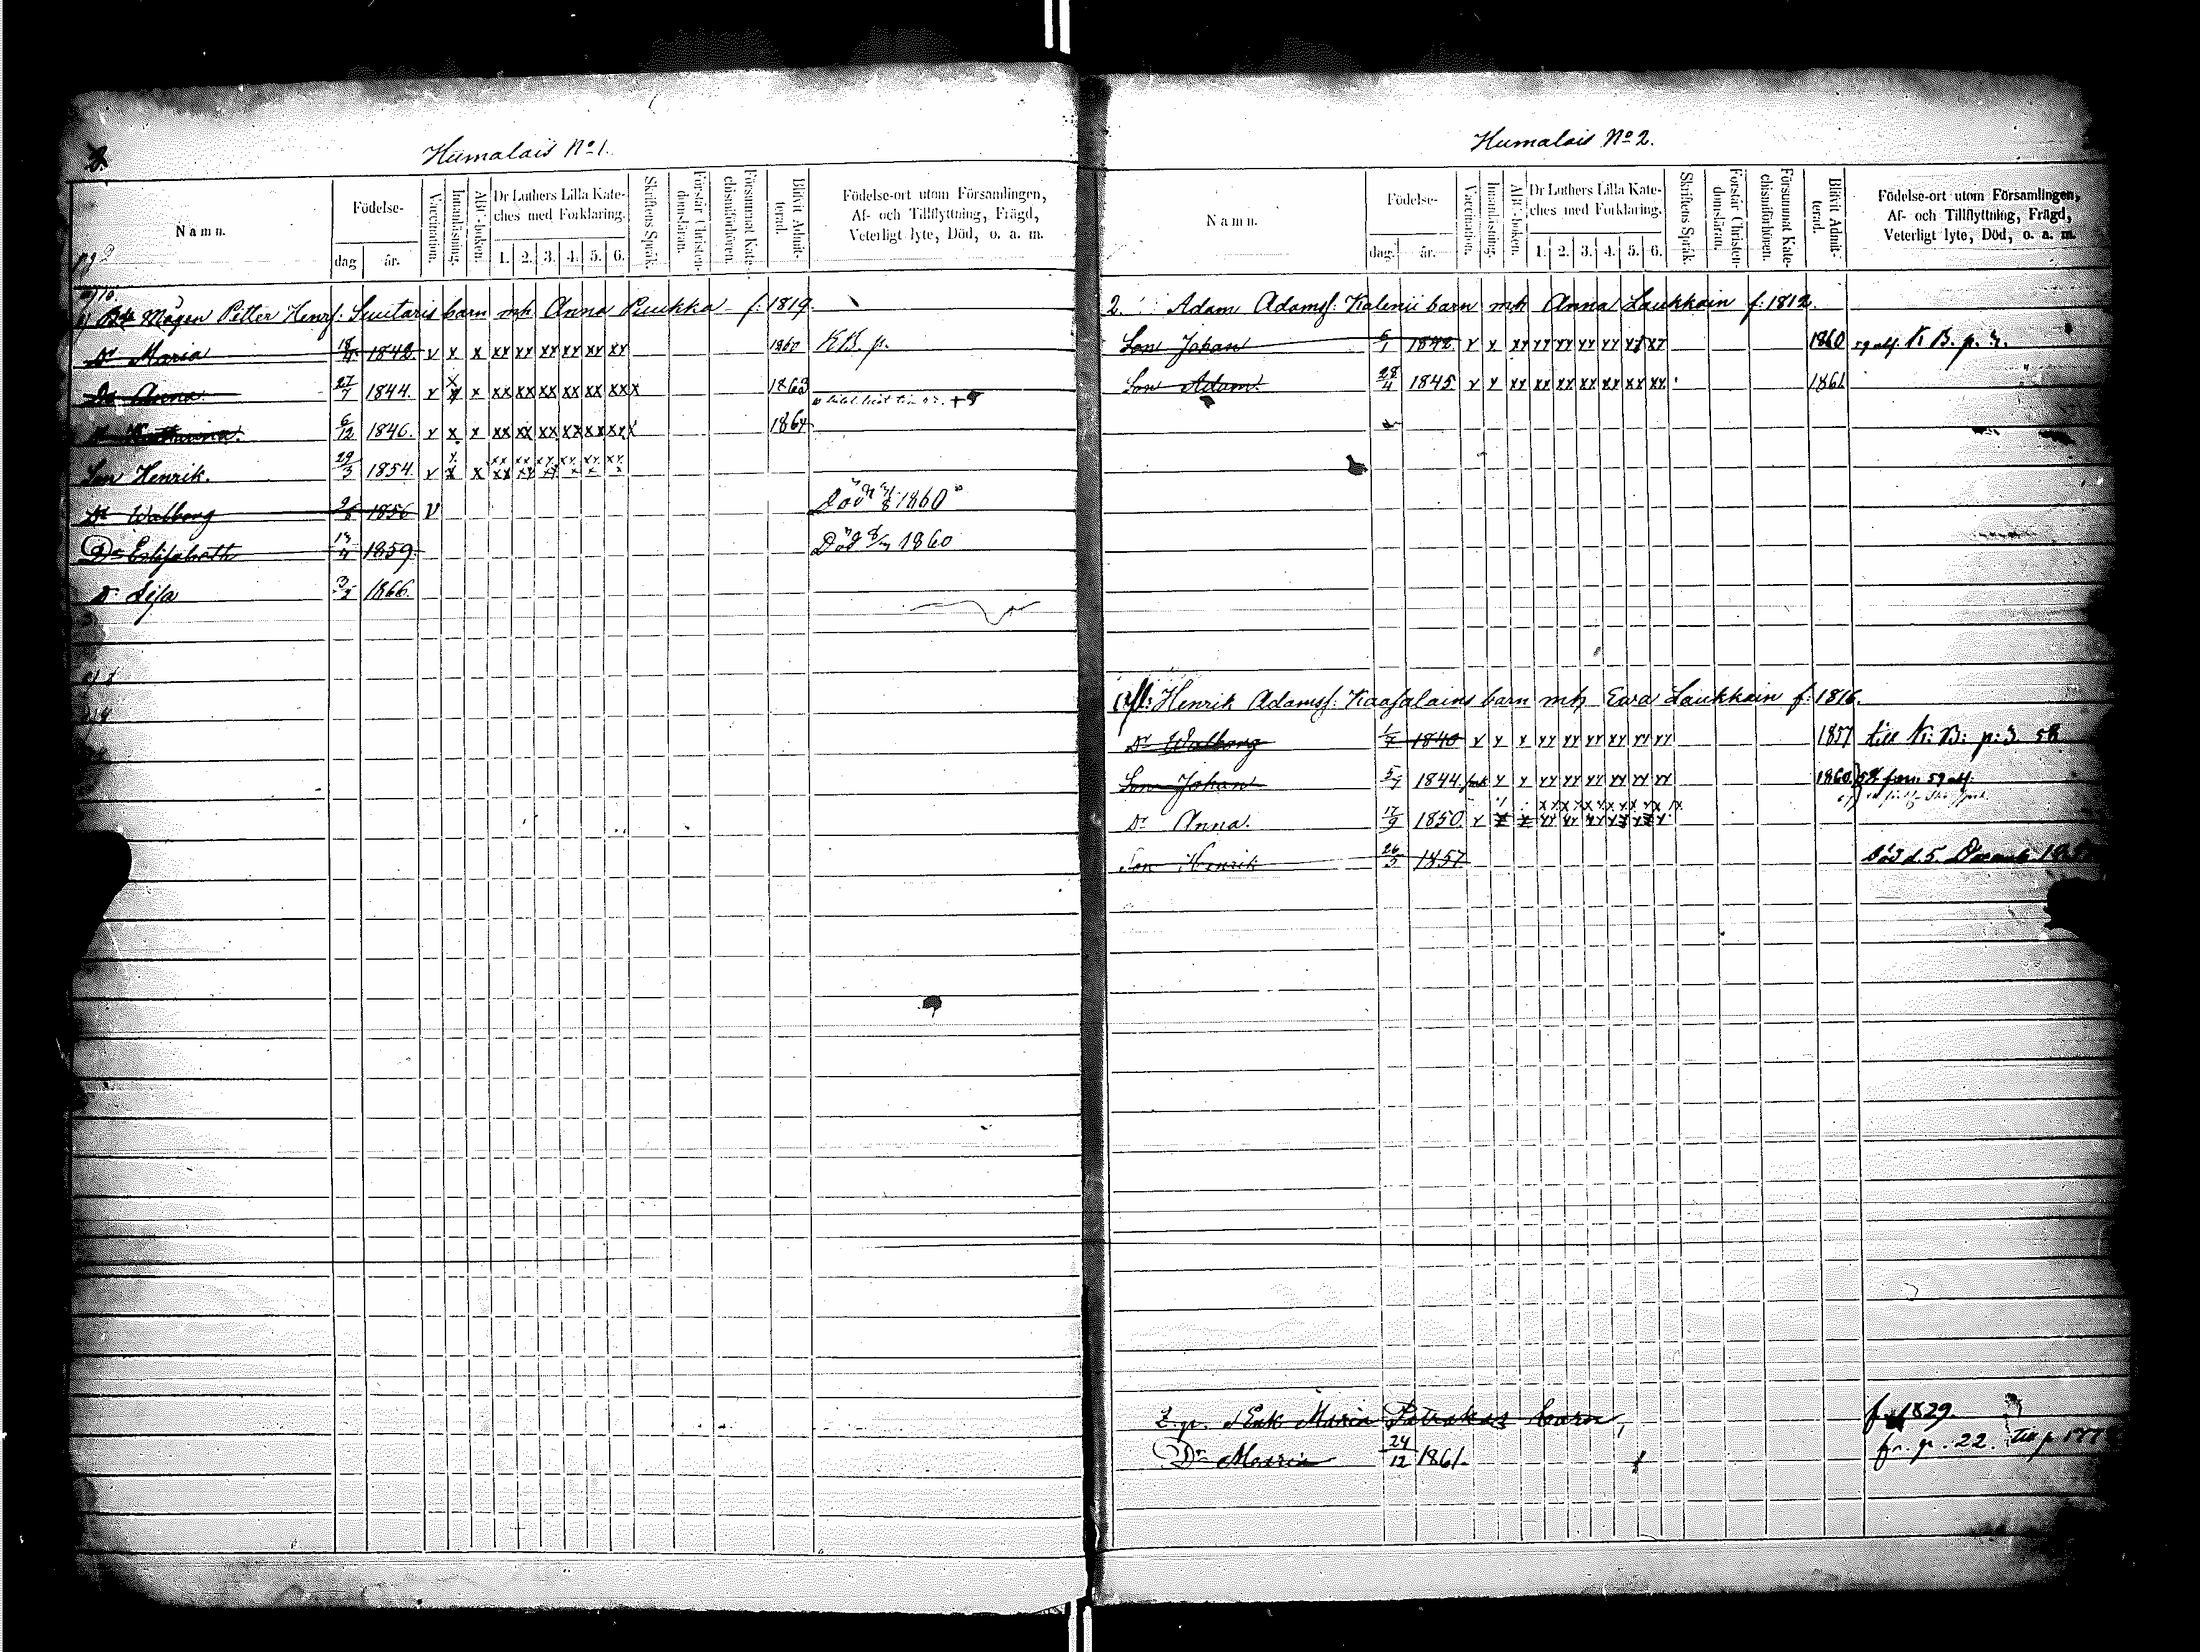 Humalais No 1.
Namn.
Födelse-
dag
år.
Vaccination.
Innanläsning.
ABC-boken.
Dr Luthers Lilla Kate-
ches med Förklaring.
1. 2. 3. 4. 5. 6.
Skriftens Språk.
Förstår Christen-
domsläran.
Försummat Kate-
chismiförhören.
Blifvit Admit-
terad.
Födelse-ort utom Församlingen,
Af- och Tillflyttning, Frägd,
Veterligt lyte, Död, o. a. m.
Mågen Petter Henrs: barn mh Anna Puukka f: 1819.
Dr Maria 1842 v x x xx xx xx xx xx xx 1860 KB. p.
Dr Anna 27/7 1844. v x x xx xx xx xx xx xxx 1863
6/12 1846. v x x xx xx xx xx xx xxx 1864
Son Henrik. 29/3 1854. v x x xx xx xx x x x
Dr Walborg 1856 v Död 1860
Dr Elisabeth 13/4 1859. Död 1860
Dr Lisa 3/2 1866.
Humalais No 2.
Namn.
Födelse-
dag.
år.
Vaccination.
Innanläsning.
ABC-boken.
Dr Luthers Lilla Kate-
ches med Förklaring.
1. 2. 3. 4. 5. 6.
Skriftens Språk.
Förstår Christen-
domsläran.
Försummat Kate-
chismiförhören.
Blifvit Admit-
terad.
Födelse-ort utom Församlingen,
Af- och Tillflyttning, Frägd,
Veterligt lyte, Död, o. a. m.
2. Adam Adamss: barn mh Anna Laukkain f: 1812.
Son Johan 6/1 1842 v x xx xx xx xx xx xx xx 1860 K B. p. 3.
Son Adam 28/4 1845 v x xx xx xx xx xx xx xx 1861
Henrik Adamss: Kaasalains barn mh Ewa Laukkain f: 1816.
Dr Walborg 1840 v x x xx xx xx xx xx xx 1857 till K: B: p: 3. 58
Son Johan 1844. x x xx xx xx xx xx xx 1860
Dr Anna. 17/9 1850. v x x xx xx xx xx xx xx
Son Henrik 26/5 1857 Död d. 5.
Enk Maria barn, f. 1829.
Dr Maria 24/12 1861. fr. p. 22.